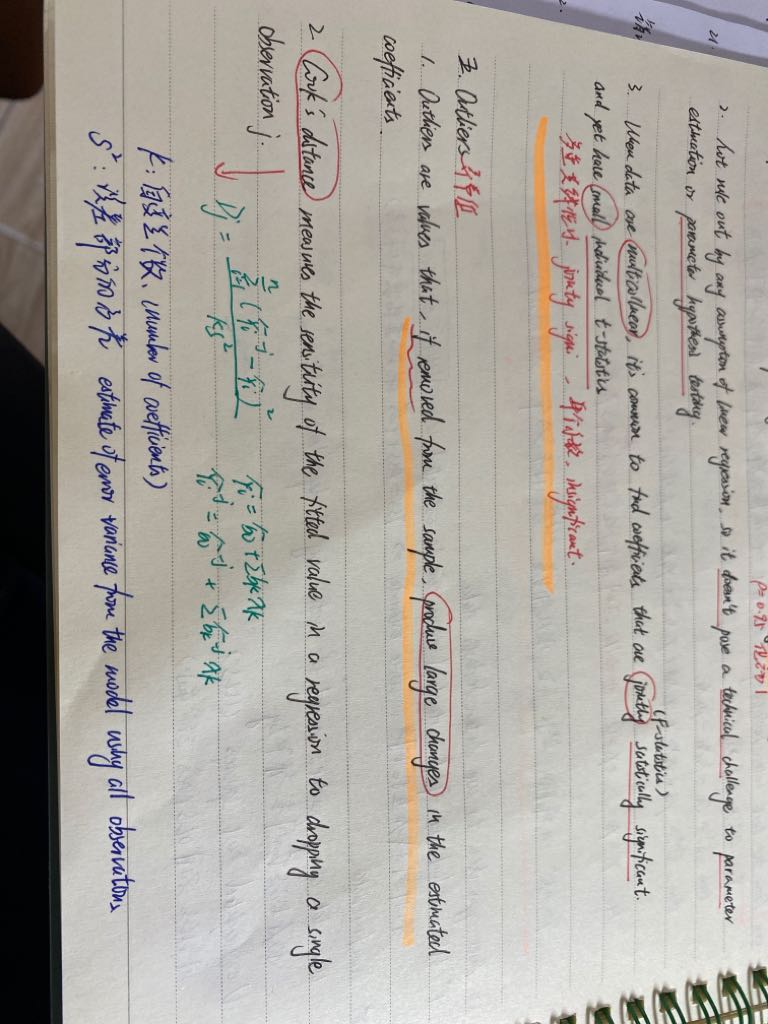 21.
ρ=0.95 接近1
2. Not rule out by any assumption of linear regression, so it doesn't pose a technical challenge to parameter
estimation or parameter hypothesis testing.
(F-statistics)
3. When data are multicollinear, it's common to find coefficients that are jointly satistically significant.
and yet have small individual t-statistics
多重共线性时, jointly signi, 单个系数, insignificant.
五. Outliers 异常值
1. Outliers are values that, if removed from the sample, produce large changes in the estimated
coefficients
2. Cook's distance measures the sensitivity of the fitted value in a regression to dropping a single
observation j.
Dj = Σ(Ŷi^-j - Ŷi)² / ks²
Ŷi = b̂0 + Σb̂k xk
Ŷi^-j = b̂0^-j + Σb̂k^-j xk
k: 自变量个数. (number of coefficients)
S²: 误差部分的方差 estimate of error variance from the model using all observations